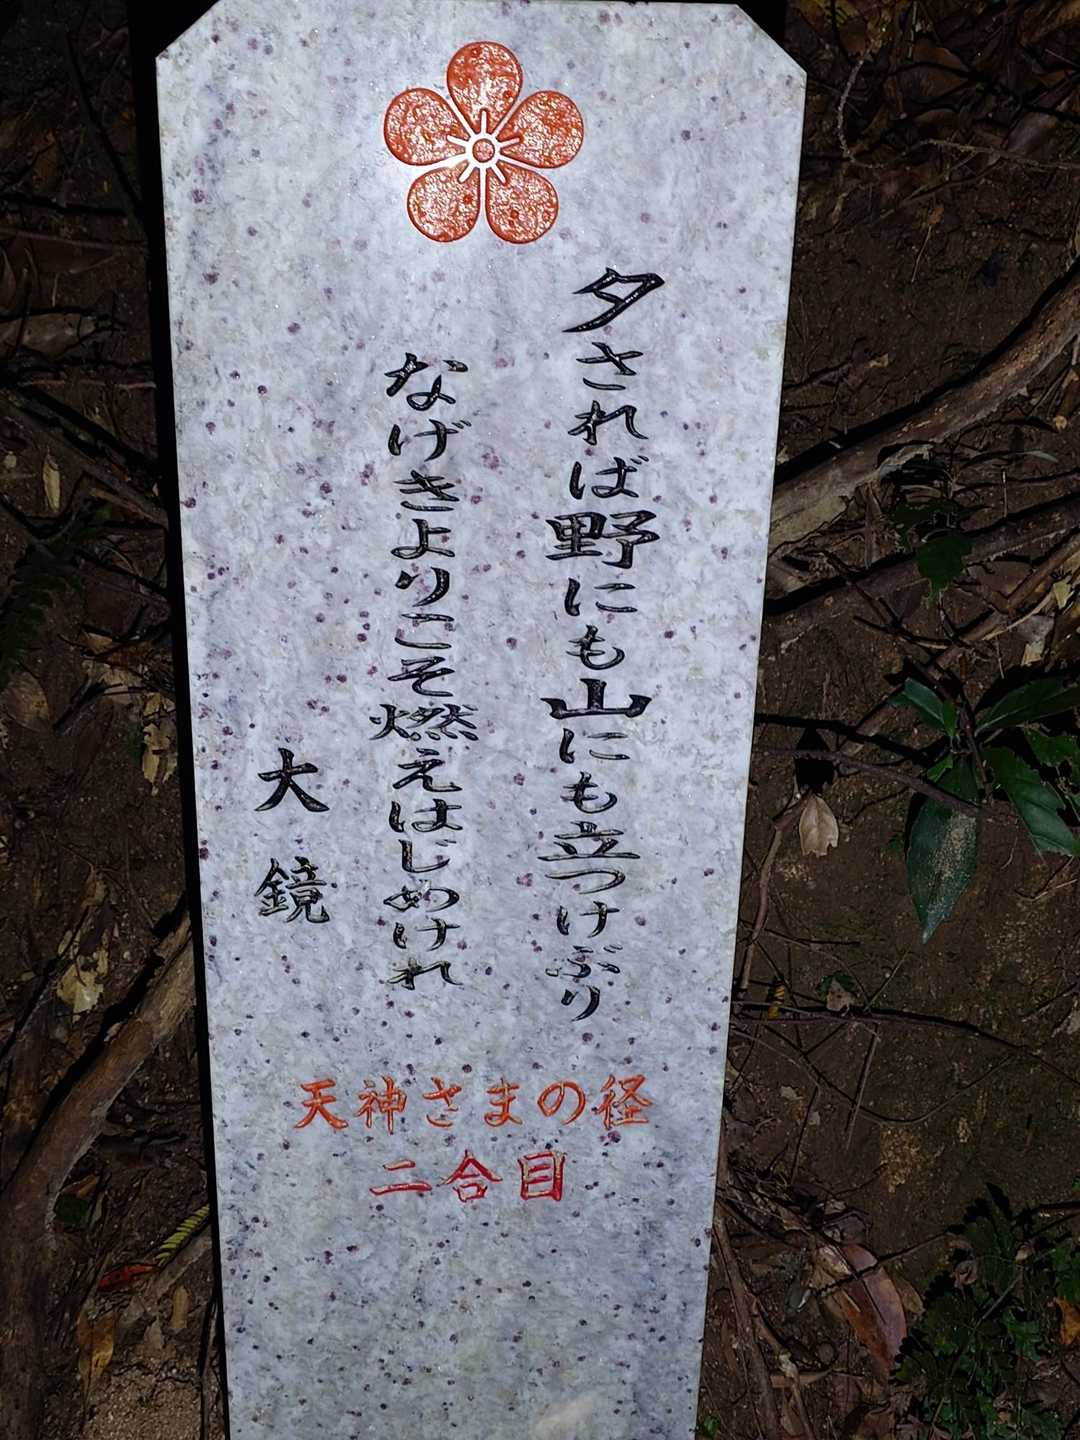 夕されば野にも山にも立つけぶり
なげきよりこそ燃えはじめけれ
大鏡
天神さまの径
二合目